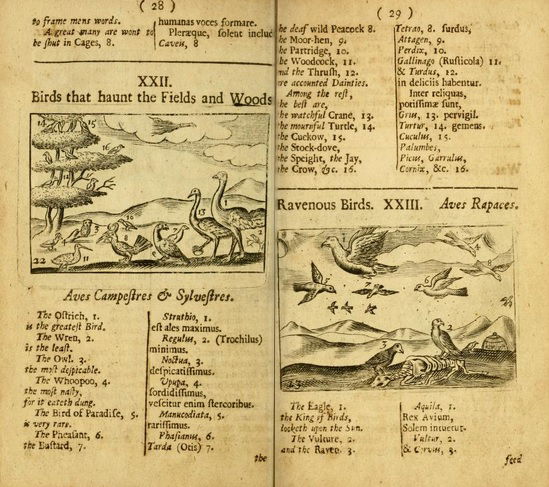 ( 28 )
to frame mens words.
A great many are wont to
be ſhut in Cages, 8
humanas voces formare.
Pleræque, ſolent includ
Caveis, 8
XXII.
Birds that haunt the Fields and Woods
Aves Campeſtres & Sylveſtres.
The Oſtrich, 1.
is the greateſt Bird.
The Wren, 2.
is the leaſt.
The Owl. 3.
the moſt deſpicable.
The Whoopoo, 4.
the moſt naſty,
for it eateth dung.
The Bird of Paradiſe, 5.
is very rare.
The Pheaſant, 6.
the Buſtard, 7.
Struthio, 1.
eſt ales maximus.
Regulus, 2. (Trochilus)
minimus.
Noctua, 3.
deſpicatiſſimus.
Upupa, 4.
ſordidiſſimus,
veſcitur enim ſtercoribus.
Manucodiata, 5.
rariſſimus.
Phaſianus, 6.
Tarda (Otis) 7.
the
( 29 )
he deaf wild Peacock 8.
he Moor-hen, 9.
he Partridge, 10.
he Woodcock, 11.
nd the Thruſh, 12.
re accounted Dainties.
Among the reſt,
he beſt are,
he watchful Crane, 13.
he mournful Turtle, 14.
the Cuckow, 15.
the Stock-dove,
the Speight, the Jay,
the Crow, &c. 16.
Tetrao, 8. ſurdus,
Attagen, 9.
Perdix, 10.
Gallinago (Ruſticola) 11.
& Turdus, 12.
in deliciis habentur.
Inter reliquas,
potiſſimæ ſunt,
Grus, 13. pervigil.
Turtur, 14. gemens.
Cuculus, 15.
Palumbes,
Picus, Garrulus,
Cornix, &c. 16.
Ravenous Birds. XXIII. Aves Rapaces.
The Eagle, 1.
the King of Birds,
looketh upon the Sun.
The Vulture, 2.
and the Raven. 3.
Aquila, 1.
Rex Avium,
Solem intuetur.
Vultur, 2.
& Corvus, 3.
feed